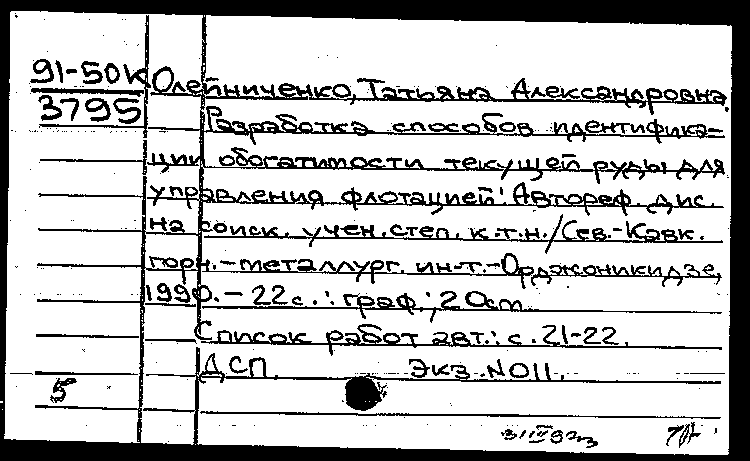 91-50К Олейниченко, Татьяна Александровна.
3795 Разработка способов идентифика-
ции обогатимости текущей руды для
управления флотацией: Автореф. дис.
на соиск. учен. степ. к.т.н./Сев.-Кавк.
горн.-металлург. ин-т.-Орджоникидзе,
1990.-22с.: граф.; 20см
Список работ авт.: с.21-22.
ДСП. Экз.N011.
5